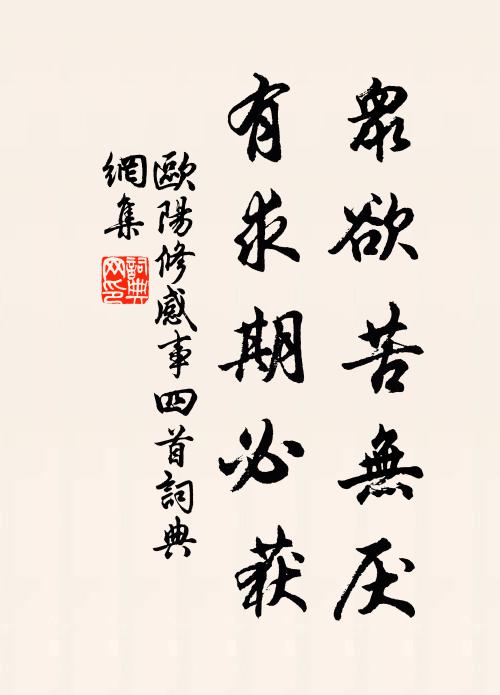 眾欲苦無厌
有求期必获
歐陽修感事四首詞典
網集
詞典
网印